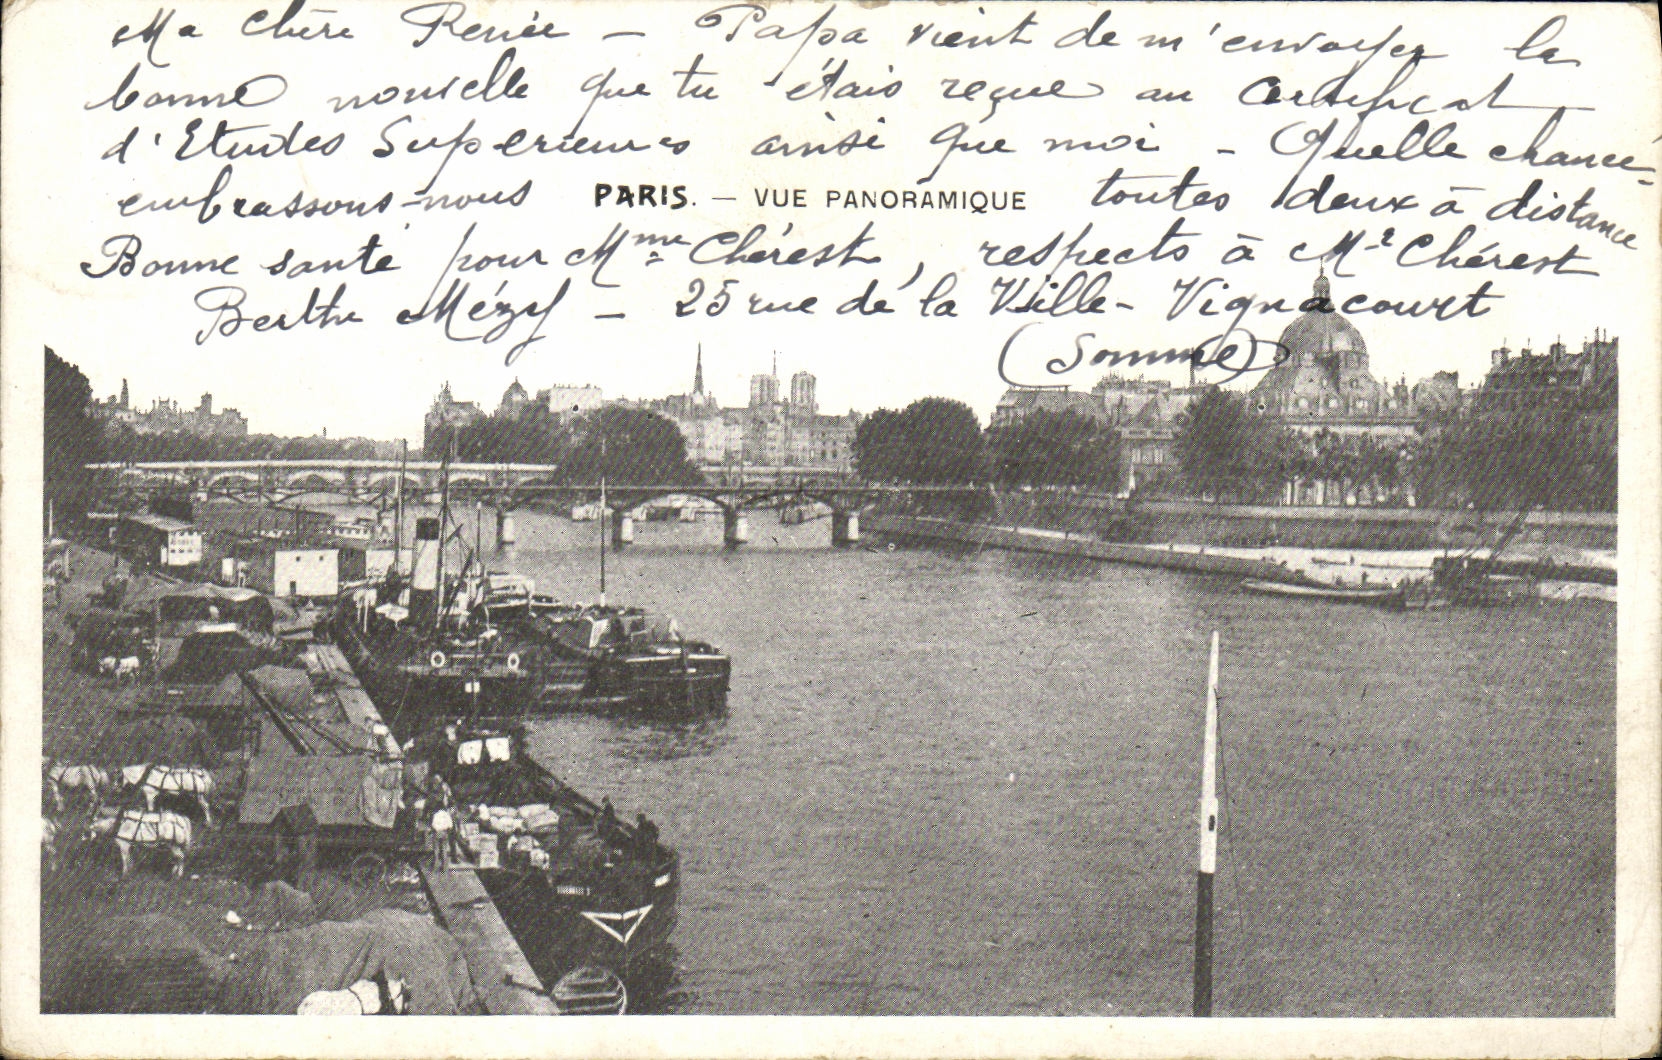 Ma chère Renée — Papa vient de m'envoyer la
bonne nouvelle que tu étais reçue au Certificat
d'Etudes Supérieures ainsi que moi - Quelle chance -
embrassons-nous PARIS. — VUE PANORAMIQUE toutes deux à distance
Bonne santé pour Mme Chérest, respects à Mr Chérest
Berthe Mézy — 25 rue de la Ville - Vignacourt
(Somme)